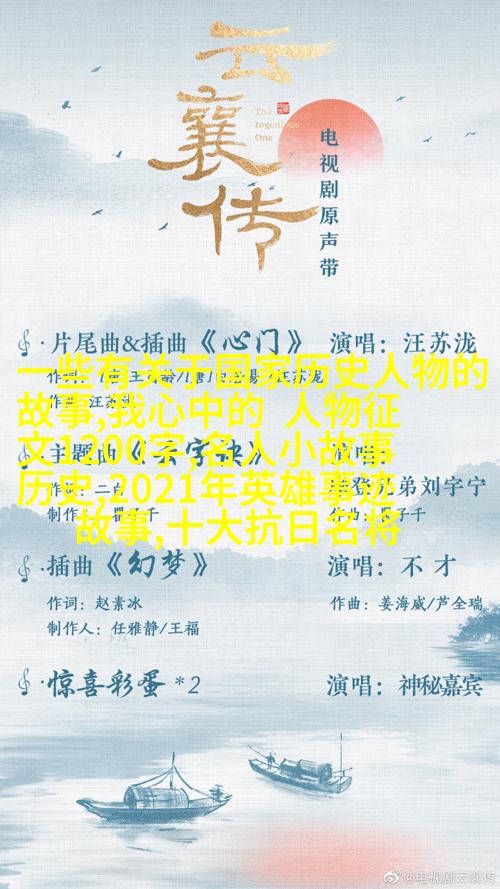 云襄传
The Ingenious One
电视剧原声带
片尾曲&插曲《心门》 演唱：汪苏泷
一些有关于国家历史人物的
故事,我心中的 人物征
文1200字,名人小故事
历史,2021年英雄事迹
故事,十大抗日名将
主题曲
兄弟刘宇宁
插曲《幻梦》 演唱：不才
作词：赵素冰 作曲：姜海威/芦全瑞
制作人：任雅静/王福
惊喜彩蛋 *2 演唱：神秘嘉宾
@电视剧云襄传